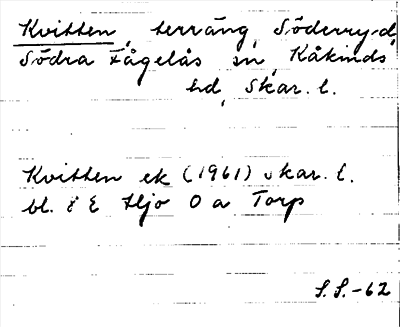 Kvitten, terräng, Söderryd,
Södra Fågelås sn, Kåkinds
hd, Skar. l.
Kvitten ek (1961) skar. l.
bl. 8 E Hjo 0 a Torp
S.S.-62